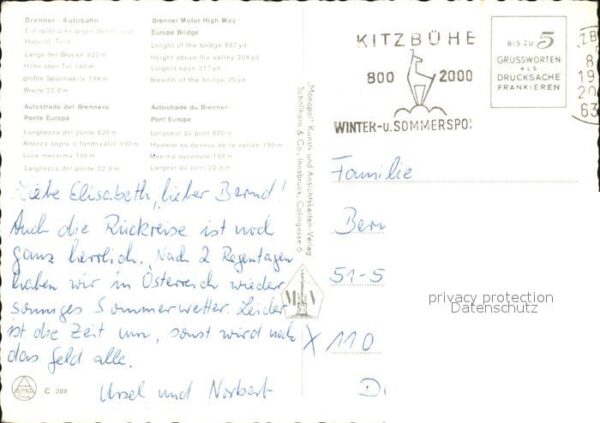 Brenner - Autobahn
Europabrücke gegen Serles und
Habicht Tirol
Länge der Brücke 820 m
Höhe über Tal 190 m
größte Spannweite 198 m
Breite 22,8 m
Brenner Motor High Way
Europe Bridge
Lenght of the bridge 897 yd.
Height above the valley 208 yd.
Largest span 217 yd.
Breadth of the bridge 25 yd.
Autostrada del Brennero
Ponte Europa
Lunghezza del ponte 820 m
Altezza sopra il fondovalle 190 m
Luce massima 198 m
Larghezza del ponte 22,8 m
Autostrade du Brenner
Pont Europe
Longueur du pont 820 m
Hauteur au dessus de la vallée 190 m
Largeur du pont 22,8 m
Liebe Elisabeth, lieber Bernd!
Auch die Rückreise ist noch
ganz herrlich. Nach 2 Regentagen
haben wir in Österreich wieder
sonniges Sommerwetter. Leider
ist die Zeit um, sonst wird noch
das Geld alle.
Ursel und Norbert
C 208
"Monopol" Kunst- und Ansichtskarten-Verlag
Schöllhorn & Co., Innsbruck, Colingasse 6
M V
KITZBÜHE
800 2000
WINTER-u.SOMMERSPO
BIS ZU 5
GRUSSWORTEN
ALS
DRUCKSACHE
FRANKIEREN
Familie
Ber
51-5
X 110
D
privacy protection
Datenschutz